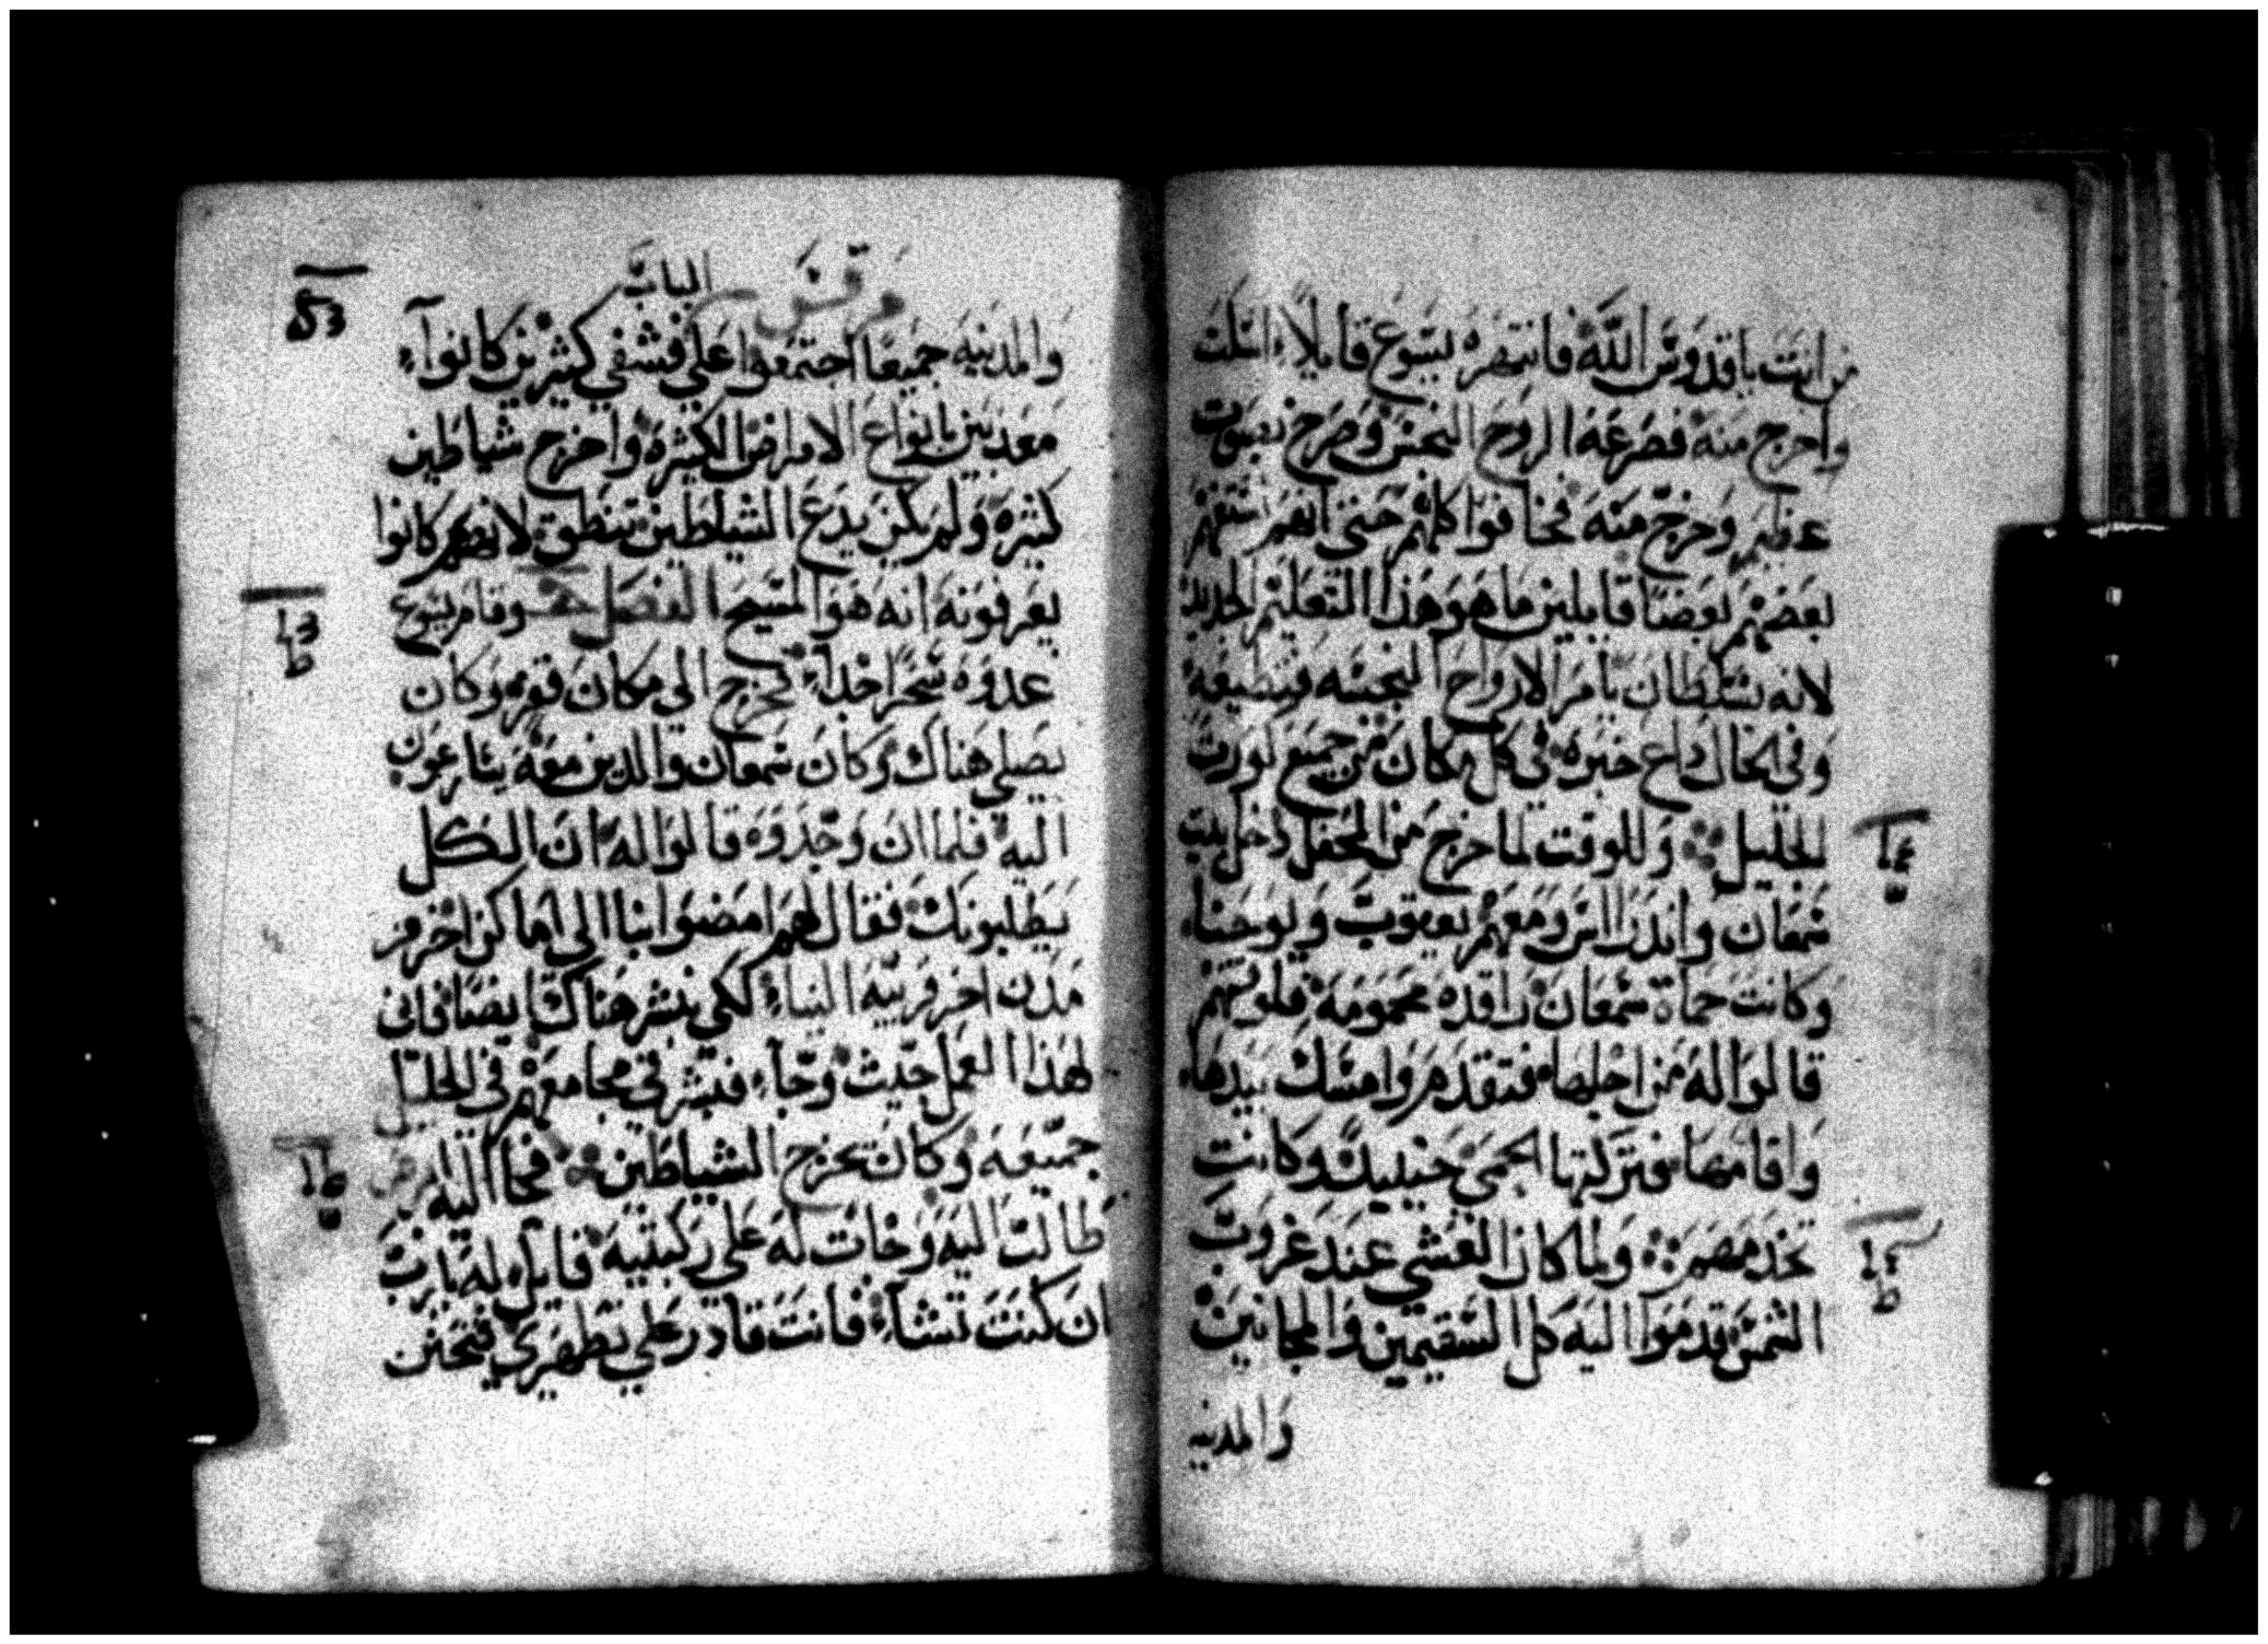 من انت يا قدوس الله فانتهره يسوع قايلاً اسكت
واخرج منه فصرعه الروح النجس وصرخ بصوت
عظيم وخرج منه فخافوا كلهم حتى انهم استفهم
بعضهم بعضاً قايلين ما هو هذا التعليم الجديد
لانه بسلطان يامر الارواح النجسه فتطيعه
وفي الحال ذاع خبره في كل مكان من جميع كورت
الجليل وللوقت لما خرج من المحفل دخل بيت
شمعان واندراس ومعهم يعقوب ويوحنا
وكانت حماة شمعان راقده محمومة فلوقتهم
قالوا له من اجلها فتقدم وامسك بيدها
واقامها فتركتها الحمى حينيذ وكانت
تخدمهم ولما كان العشي عند غروب
الشمس قدموا اليه كل السقيمين والمجانين
والمدينه
مرقس الباب
والمدينه جميعاً اجتمعوا على فشفي كثيرين كانوا
معذبين بانواع الامراض الكثيره واخرج شياطين
كثيره ولم يكن يدع الشياطين تنطق لانهم كانوا
يعرفونه انه هو المسيح الفصل وقام يسوع
غدوه سحراً جداً فخرج الي مكان قفره وكان
يصلي هناك وكان شمعان والذين معه يسارعون
اليه فلما ان وجدوه قالوا له ان الكل
يطلبونك فقال لهم امضوا بنا الى اماكن اخر و
مدن اخر قريبه الينا لكي نبشر هناك ايضا فاني
لهذا العمل جيت وجاء فبشر في مجامعهم في الجليل
جميعه وكان يخرج الشياطين فجا اليه ابرص
طالب اليه وجات له على ركبتيه قايلا له يا رب
ان كنت تشاء فانت قادر على تطهري فتحنن